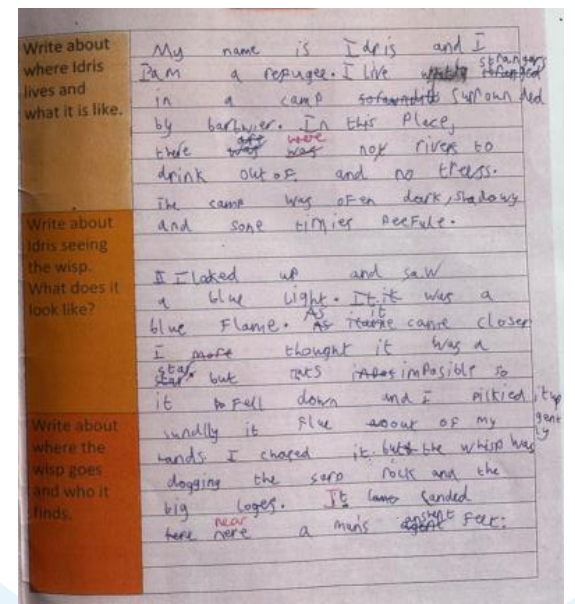 Write about
where Idris
lives and
what it is like.
My name is Idris and I
I am a refugee. I live with strangers
in a camp surrounded
by barbwier. In this place,
there are were noy rivers to
drink out of and no treass.
The camp was ofen dark, shadowy
and some timies peefule.
Write about
Idris seeing
the wisp.
What does it
look like?
I laked up and saw
a blue light. It was a
blue flame. As it came closer
I thought it was a
star but imposible so
it fell down and I pickied it up
gently
sundlly it flue out of my
hands I chased it. but the whisp was
dogging the sarp rock and the
big loges. It landed
near a mans feet.
Write about
where the
wisp goes
and who it
finds.